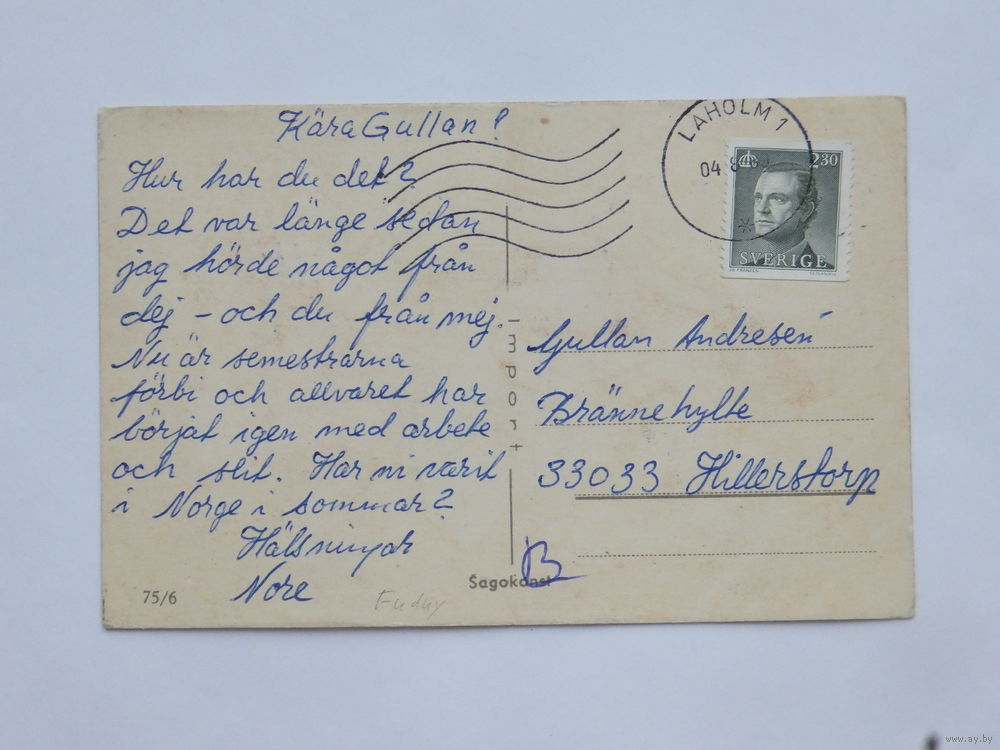 Kära Gullan!
Hur har du det?
Det var länge sedan
jag hörde något från
dej - och du från mej.
Nu är semestrarna
förbi och allvaret har
börjat igen med arbete
och slit. Har ni varit
i Norge i sommar?
Hälsningar
Nore
75/6
Sagokonst
Import
LAHOLM 1
04.8
2.30
SVERIGE
Gullan Andresen
Brännehylte
33033 Hillerstorp
B
www.ay.by